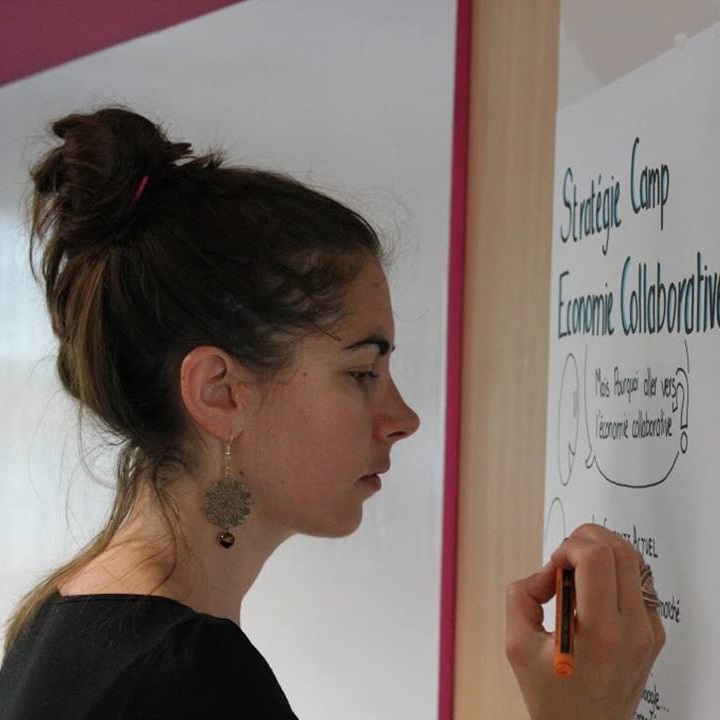 Stratégie Camp
Economie Collaborative
Mais Pourquoi aller vers
l'économie collaborative ?
Actuel
marché